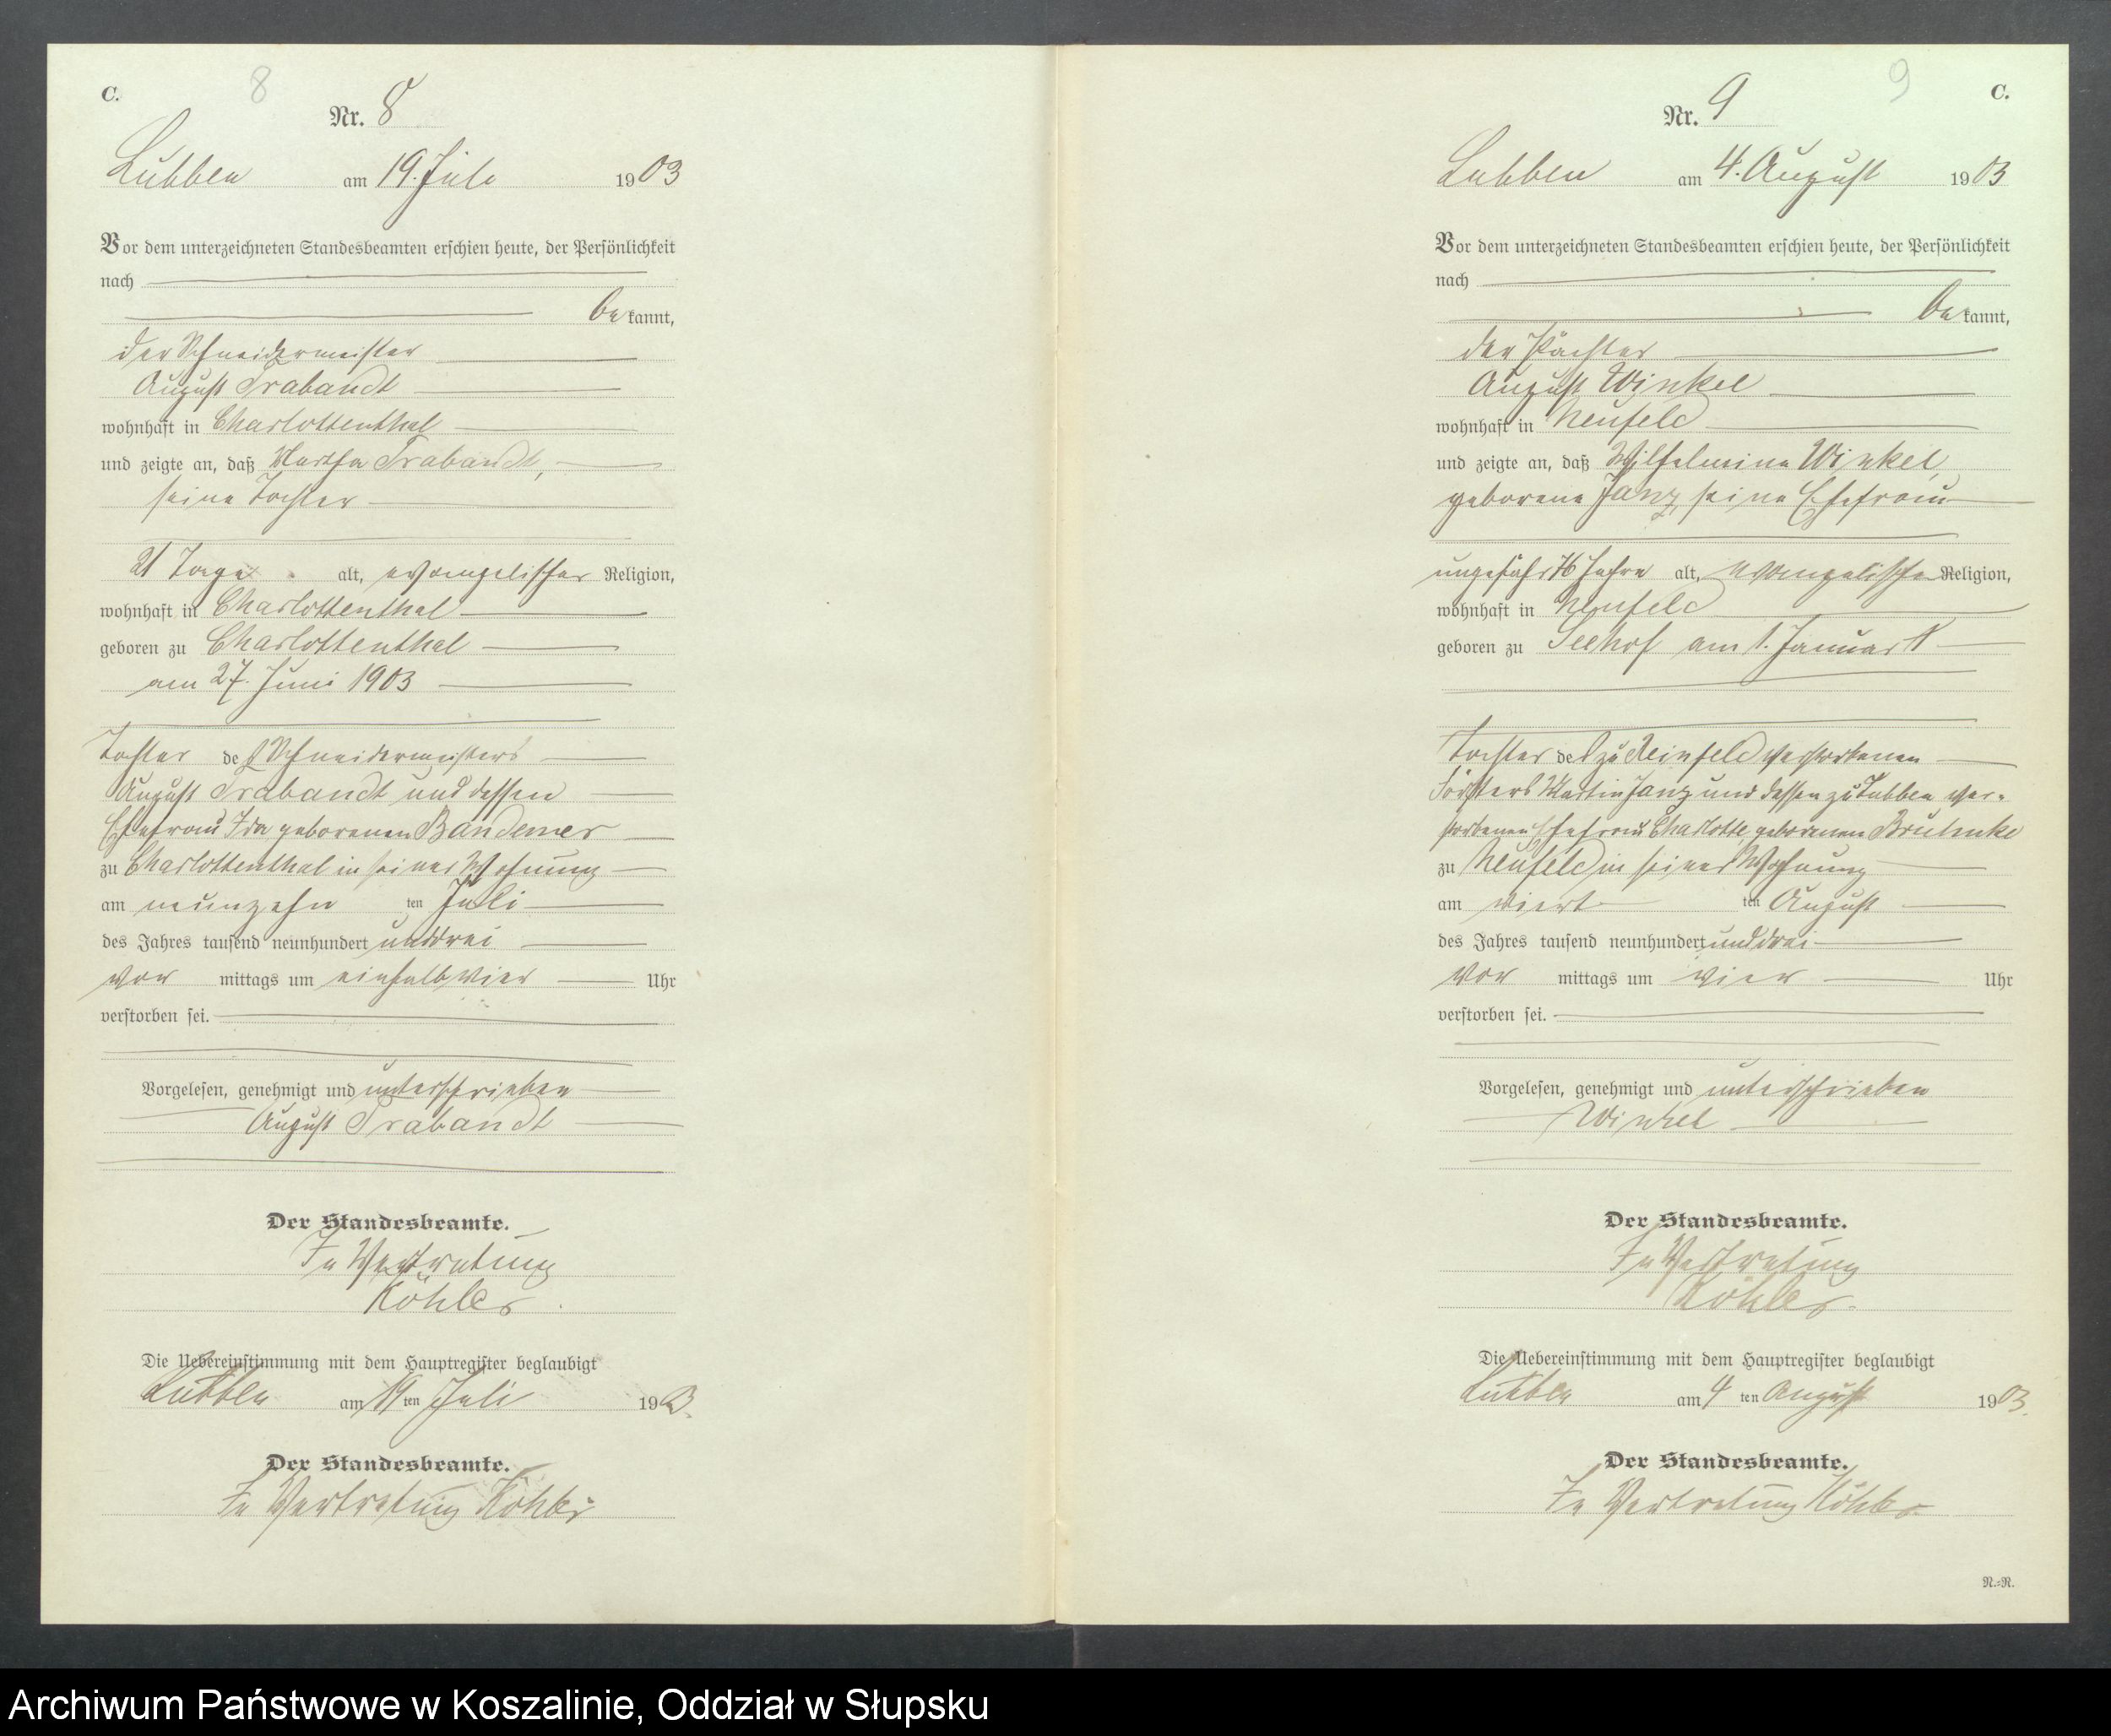 C.
8
Nr. 8
Lubben am 19. Juli 1903
Vor dem unterzeichneten Standesbeamten erschien heute, der Persönlichkeit
nach
bekannt,
der Schneidermeister
August Trabandt
wohnhaft in Charlottenthal
und zeigte an, daß Martha Trabandt,
seine Tochter
21 Tage alt, evangelischer Religion,
wohnhaft in Charlottenthal
geboren zu Charlottenthal
am 27. Juni 1903
Tochter des Schneidermeisters
August Trabandt und dessen
Ehefrau Ida geborenen Bandemer
zu Charlottenthal in seiner Wohnung
am neunzehn ten Juli
des Jahres tausend neunhundert unddrei
vor mittags um einhalbvier Uhr
verstorben sei.
Vorgelesen, genehmigt und unterschrieben
August Trabandt
Der Standesbeamte.
In Vertretung
Köhler
Die Uebereinstimmung mit dem Hauptregister beglaubigt
Lubben am 19 ten Juli 1903.
Der Standesbeamte.
In Vertretung Köhler
9
C.
Nr. 9
Lubben am 4. August 1903
Vor dem unterzeichneten Standesbeamten erschien heute, der Persönlichkeit
nach
bekannt,
der Pächter
August Winkel
wohnhaft in Neufeld
und zeigte an, daß Wilhelmine Winkel,
geborene Janz, seine Ehefrau
ungefähr 76 Jahre alt, evangelischer Religion,
wohnhaft in Neufeld
geboren zu Seehof am 1. Januar
Tochter des zu Reinfeld verstorbenen
Försters Martin Janz und dessen zu Lubben ver-
storbenen Ehefrau Charlotte, geborenen
zu Neufeld in seiner Wohnung
am viert ten August
des Jahres tausend neunhundert unddrei
vor mittags um vier Uhr
verstorben sei.
Vorgelesen, genehmigt und unterschrieben
Winkel
Der Standesbeamte.
In Vertretung
Köhler.
Die Uebereinstimmung mit dem Hauptregister beglaubigt
Lubben am 4 ten August 1903.
Der Standesbeamte.
In Vertretung Köhler
N.=N.
Archiwum Państwowe w Koszalinie, Oddział w Słupsku